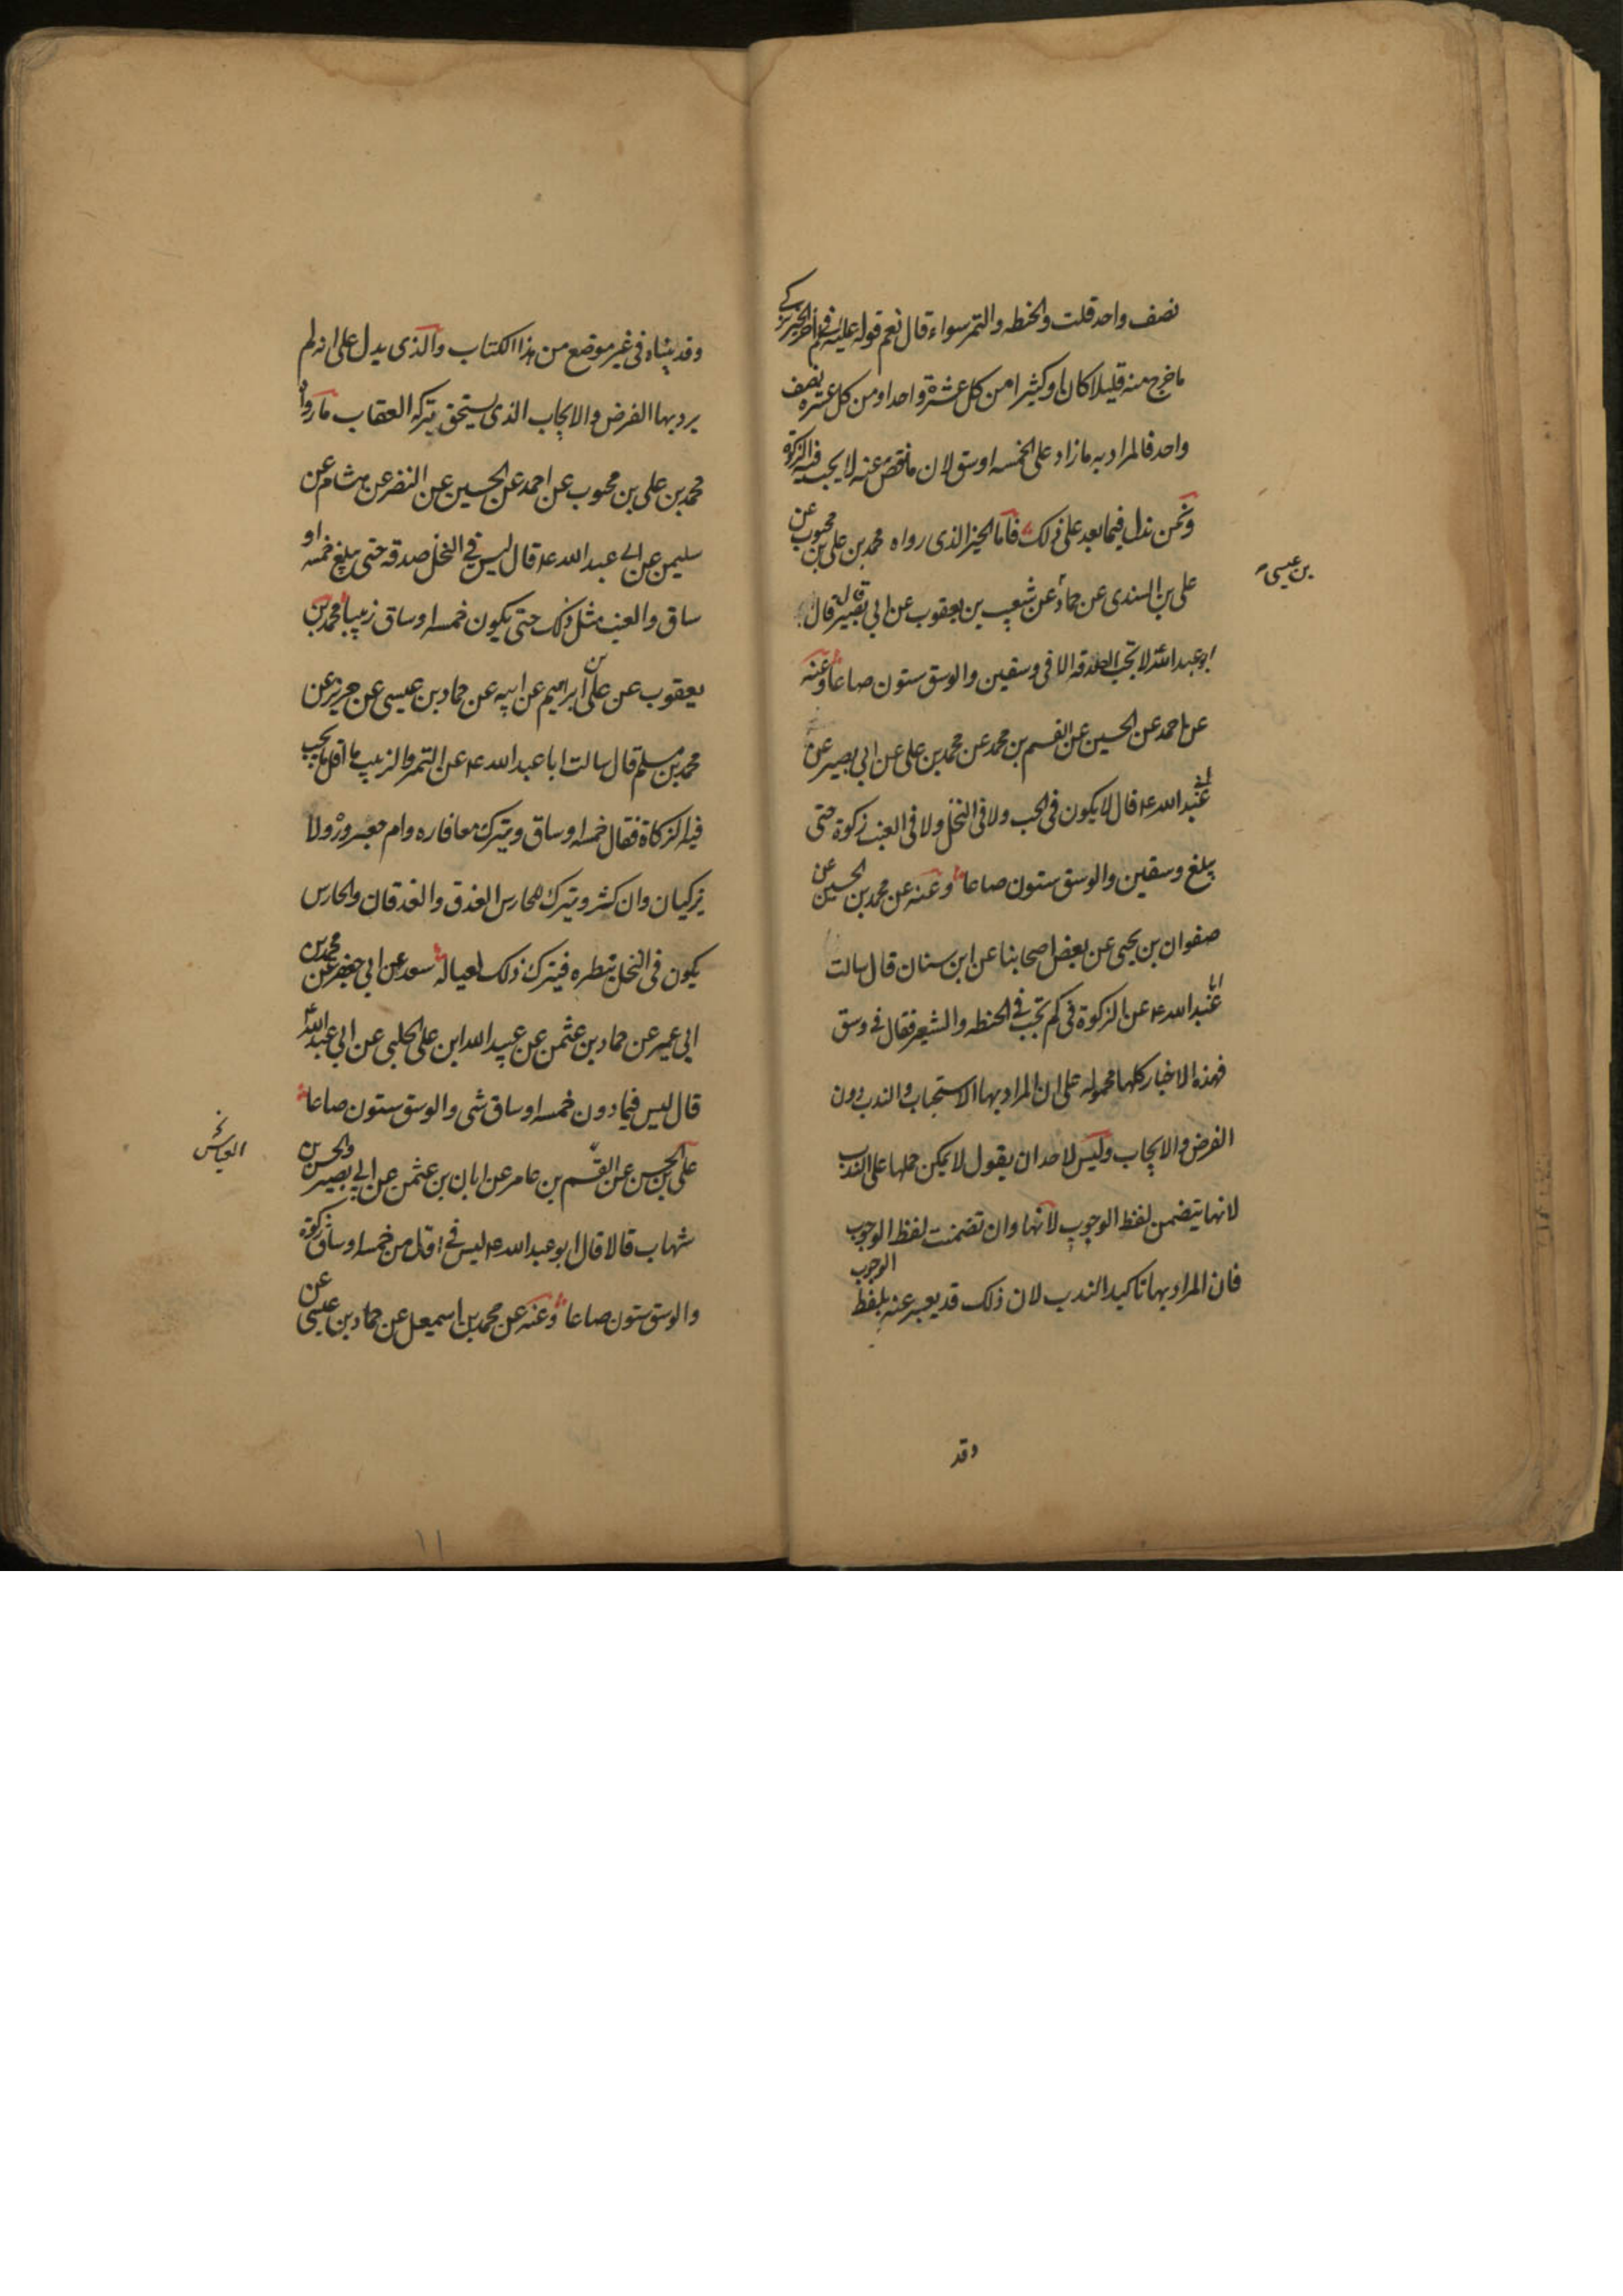 نصف واحد قلت والحنطه والتمر سواء قال نعم قوله عليه في آخر الخبر يزكي
ما خرج منه قليلا كان او كثيرا من كل عشرة واحدا ومن كل عشره نصف
واحد فالمراد به ما زاد على الخمسه اوسق لان ما نقص عنه لا يجب فيه الزكوة
ونحن ندل فيما بعد على ذلك فاما الخبر الذى رواه محمد بن على بن محبوب عن
على بن السندى عن حماد عن شعيب بن يعقوب عن ابي بصير قال قال
بن عيسى
ابو عبد الله لا تجب الصدقه الا فى وسقين والوسق ستون صاعا وعنه
عن احمد عن الحسين عن القسم بن محمد عن محمد بن على عن ابي بصير عن
ابي عبد الله ع قال لا يكون فى الحب ولا فى النخل ولا فى العنب زكوة حتى
يبلغ وسقين والوسق ستون صاعا وعنه عن محمد بن الحسين عن
صفوان بن يحيى عن بعض اصحابنا عن ابن سنان قال سالت
ابا عبد الله ع عن الزكوة فى كم تجب في الحنطه والشعير فقال فى وسق
فهذه الاخبار كلها محموله على ان المراد بها الاستحباب والندب دون
الفرض والايجاب وليس لاحد ان يقول لا يمكن حملها على الندب
لانها يتضمن لفظ الوجوب لانها وان تضمنت لفظ الوجوب
فان المراد بها تاكيد الندب لان ذلك قد يعبر عنه بلفظ الوجوب
وقد
وقد بيناه فى غير موضع من هذا الكتاب والذى يدل على انه لم
يرد بها الفرض والايجاب الذى يستحق بتركه العقاب ما رواه
محمد بن على بن محبوب عن احمد عن الحسين عن النضر عن هشام عن
سليمن عن ابي عبد الله ع قال ليس في النخل صدقه حتى يبلغ خمسه او
ساق والعنب مثل ذلك حتى يكون خمسه اوساق زبيبا محمد بن
يعقوب عن على بن ابراهيم عن ابيه عن حماد بن عيسى عن حريز عن
محمد بن مسلم قال سالت ابا عبد الله ع عن التمر والزبيب ما اقل ما يجب
فيه الزكاة فقال خمسه اوساق ويترك معافاره وام جعرور ولا
يزكيان وان كثر ويترك للحارس العذق والعذقان والحارس
يكون فى النخل ينظره فيترك ذلك لعياله سعد عن ابي جعفر عن محمد بن
ابى عمير عن حماد بن عثمن عن عبيد الله ابن على الحلبى عن ابي عبد الله ع
قال ليس فيما دون خمسه اوساق شى والوسق ستون صاعا
على بن الحسن عن القسم بن عامر عن ابان بن عثمن عن ابي بصير والحسن بن
العباس خ
شهاب قالا قال ابو عبد الله ع ليس فى اقل من خمسه اوساق زكوة
والوسق ستون صاعا وعنه عن محمد بن اسمعيل عن حماد بن عيسى عن
١١